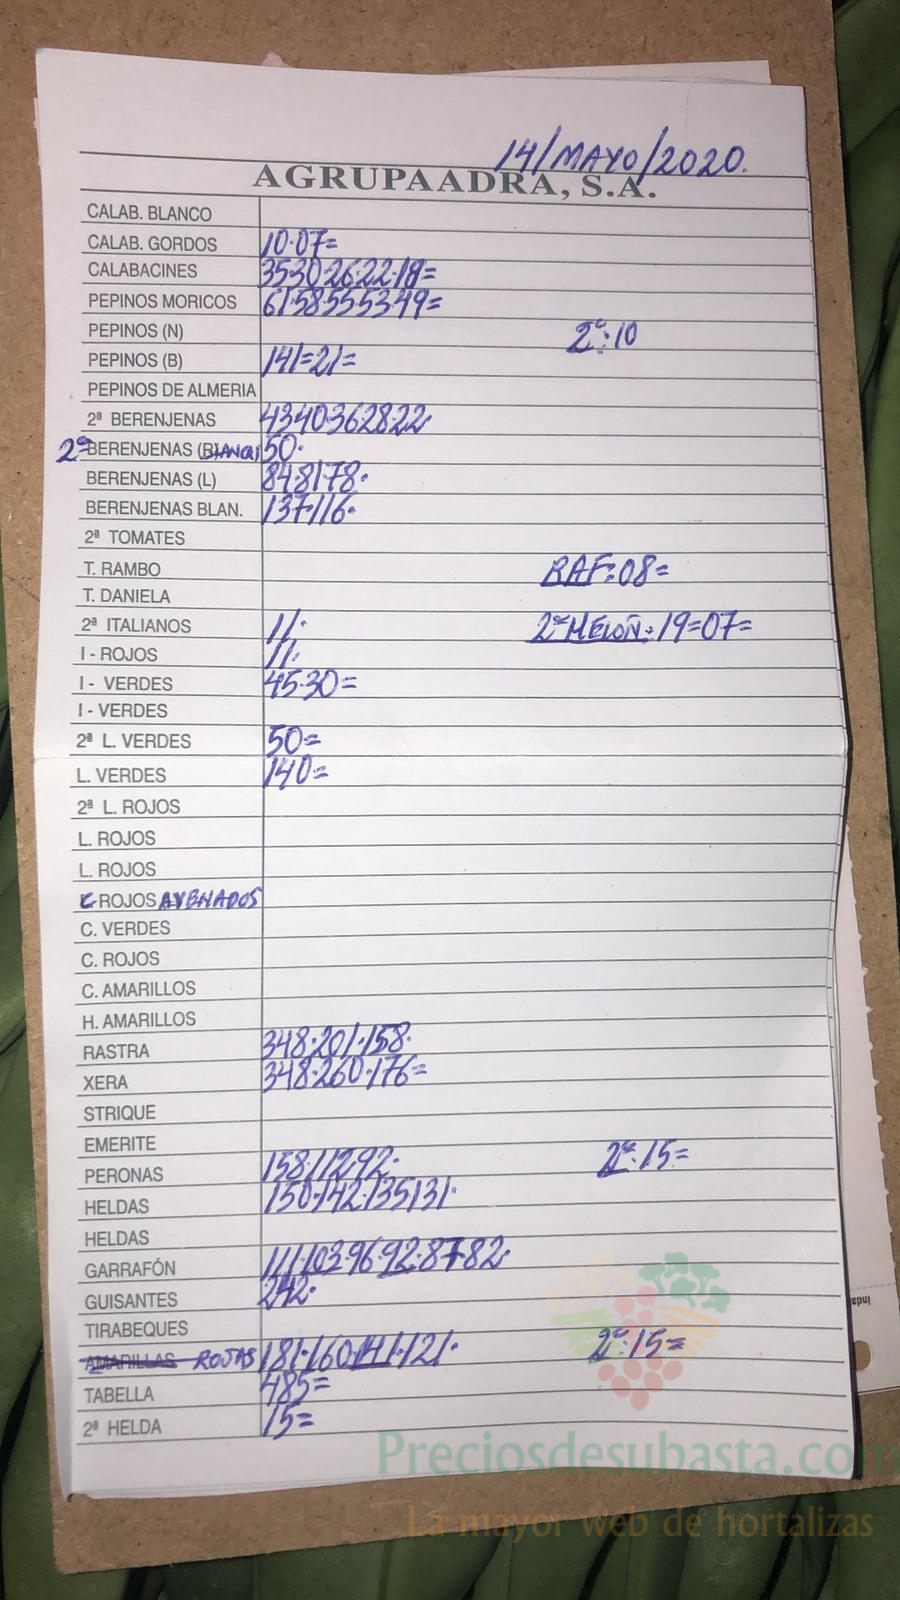 14/MAYO/2020.
AGRUPAADRA, S.A.
CALAB. BLANCO
CALAB. GORDOS 10·07=
CALABACINES 35·30·26·22·18=
PEPINOS MORICOS 61·58·55·53·49=
PEPINOS (N) 2ª:10
PEPINOS (B) 141=21=
PEPINOS DE ALMERIA
2ª BERENJENAS 43·40·36·28·22·
2ª BERENJENAS (BLANCA) 50·
BERENJENAS (L) 84·81·78·
BERENJENAS BLAN. 137·116·
2ª TOMATES
T. RAMBO RAF:08=
T. DANIELA
2ª ITALIANOS 11· 2ª MELON:19=07=
I - ROJOS 11·
I - VERDES 45·30=
I - VERDES
2ª L. VERDES 50=
L. VERDES 140=
2ª L. ROJOS
L. ROJOS
L. ROJOS
C ROJOS AVENADOS
C. VERDES
C. ROJOS
C. AMARILLOS
H. AMARILLOS
RASTRA 348·201·158·
XERA 348·260·176=
STRIQUE
EMERITE
PERONAS 158·112·92· 2ª:15=
HELDAS 150·142·135·131·
HELDAS
GARRAFÓN 111·103·96·92·87·82·
GUISANTES 242·
TIRABEQUES
AMARILLAS ROJAS 181·160·141·121· 2ª:15=
TABELLA 485=
2ª HELDA 15=
Inda
Preciosdesubasta.com
La mayor web de hortalizas